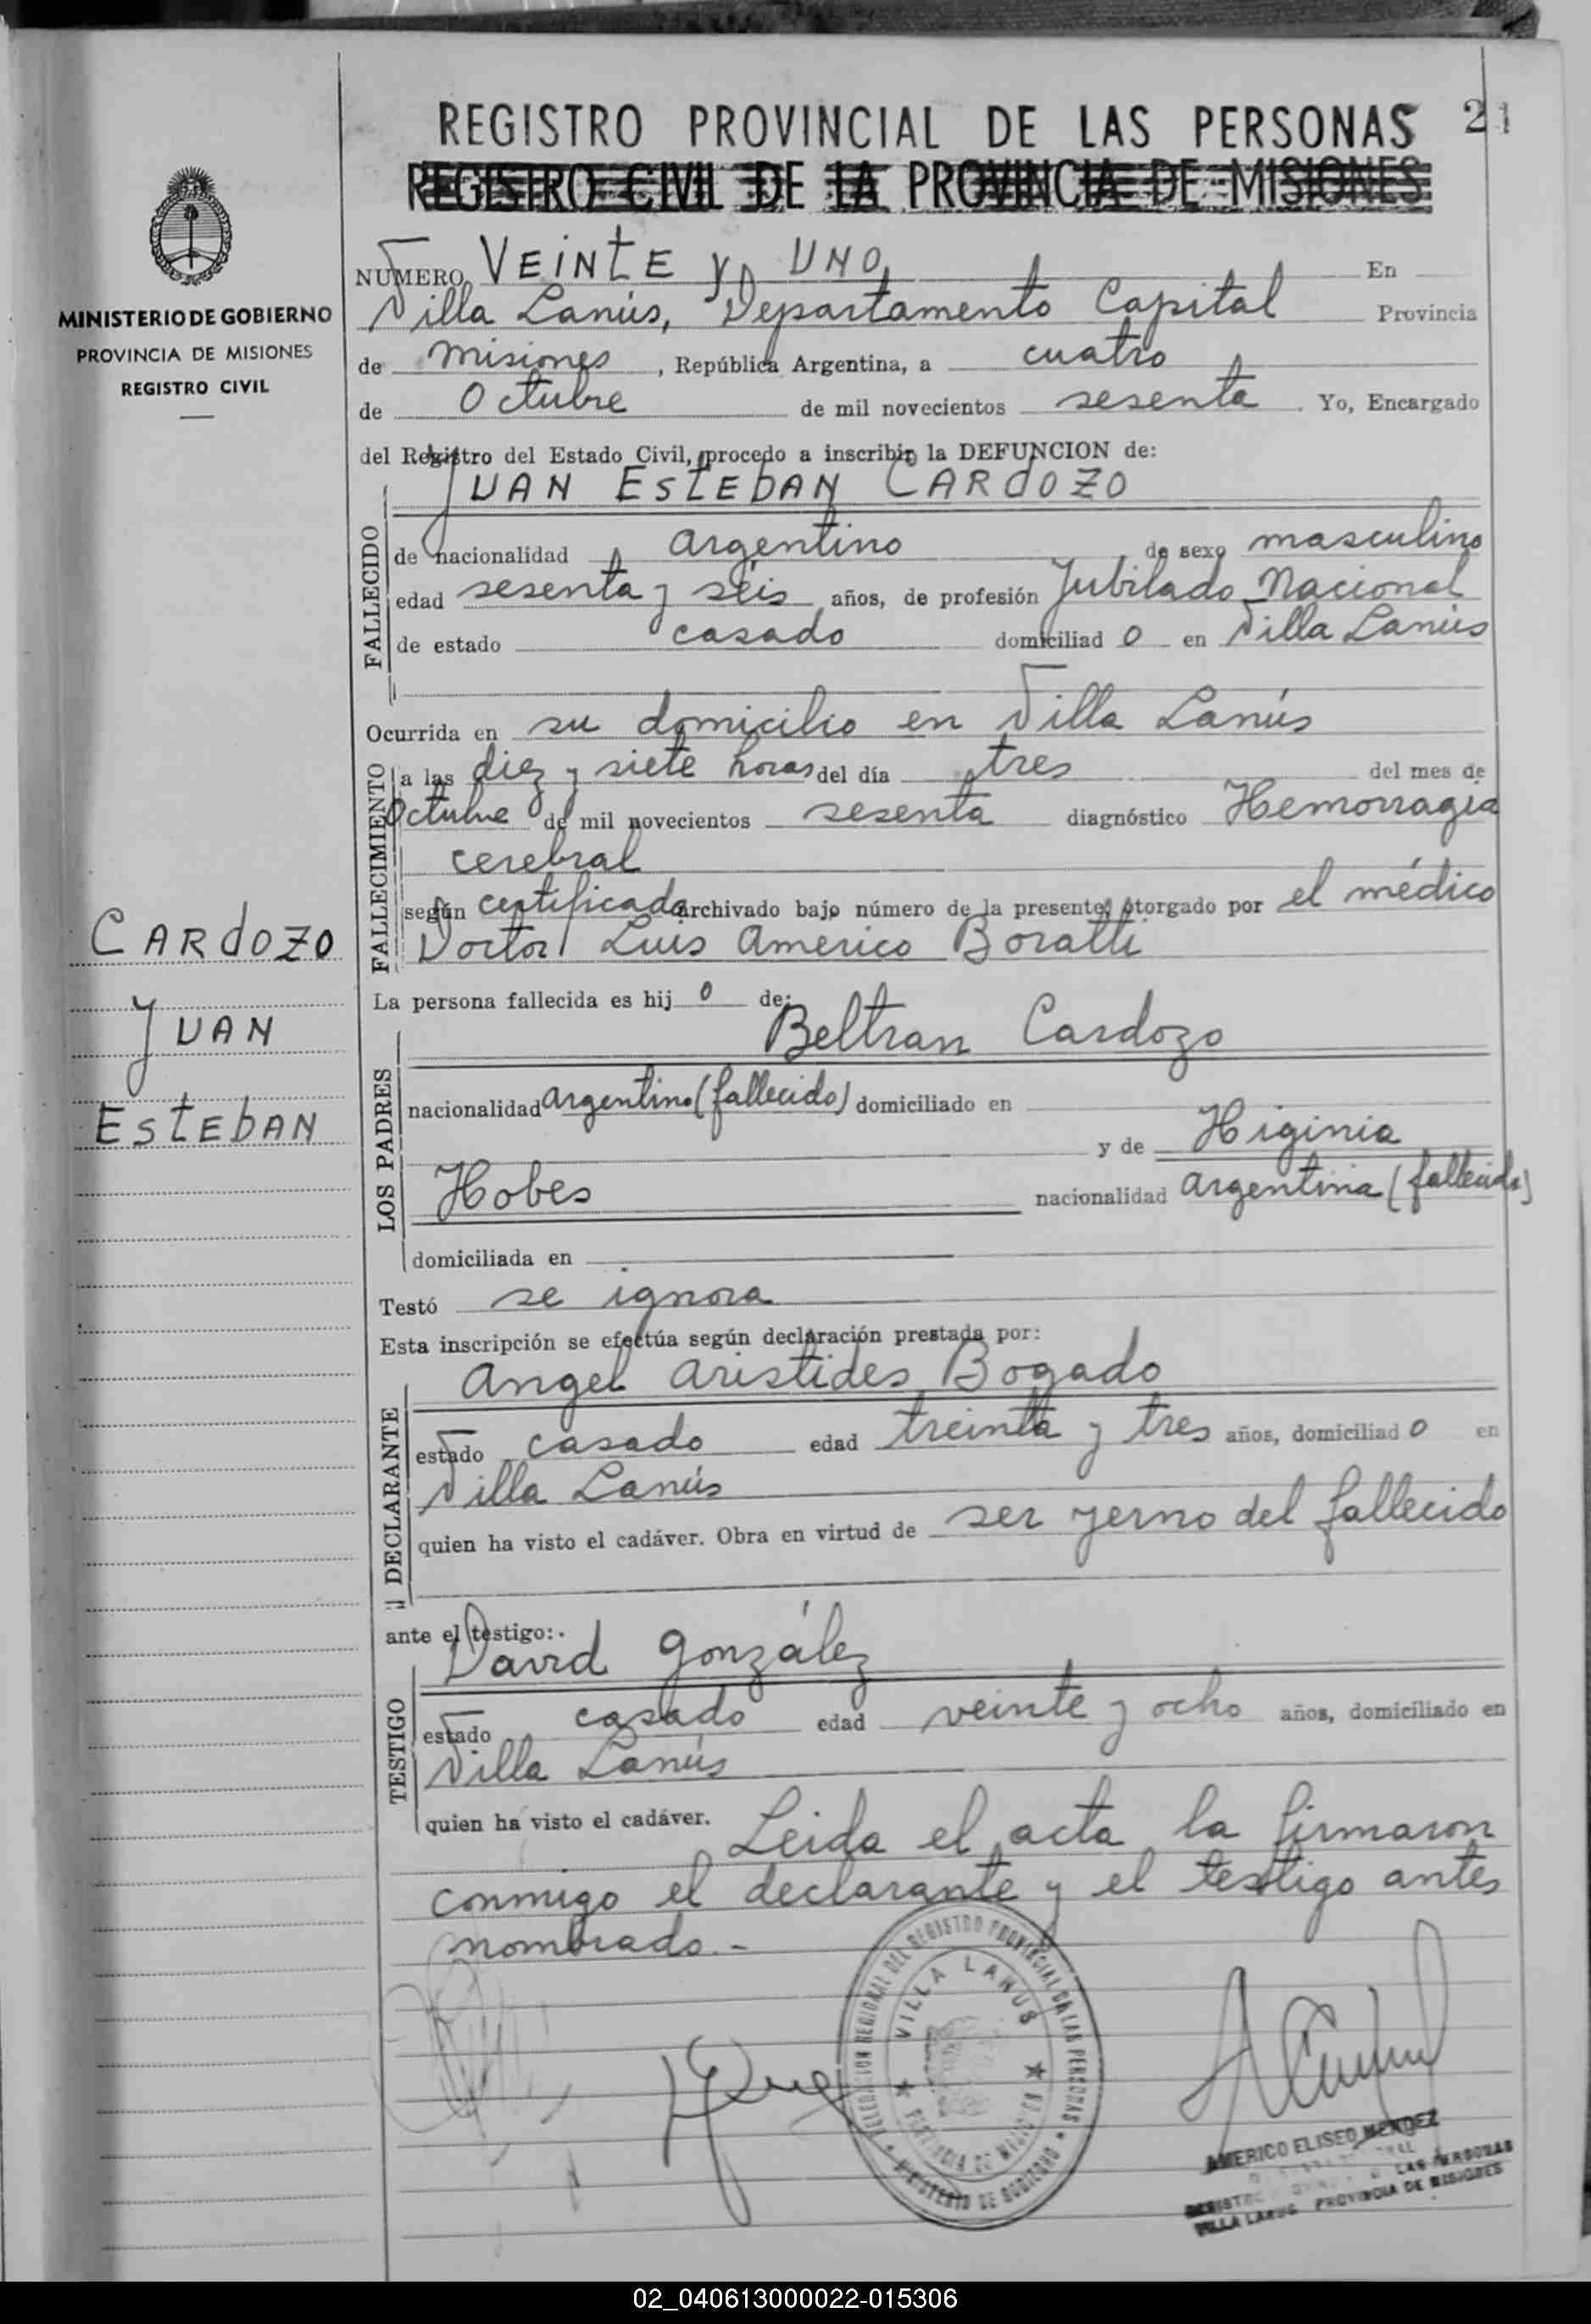 REGISTRO PROVINCIAL DE LAS PERSONAS 21
REGISTRO CIVIL DE LA PROVINCIA DE MISIONES
MINISTERIO DE GOBIERNO
PROVINCIA DE MISIONES
REGISTRO CIVIL
NUMERO VEINTE Y UNO En
Villa Lanús, Departamento Capital Provincia
de Misiones, República Argentina, a cuatro
de Octubre de mil novecientos sesenta. Yo, Encargado
del Registro del Estado Civil, procedo a inscribir la DEFUNCION de:
JUAN ESTEBAN CARDOZO
FALLECIDO
de nacionalidad argentino de sexo masculino
edad sesenta y séis años, de profesión Jubilado Nacional
de estado casado domiciliado en Villa Lanús
Ocurrida en su domicilio en Villa Lanús
FALLECIMIENTO
a las diez y siete horas del día tres del mes de
Octubre de mil novecientos sesenta diagnóstico Hemorragia
cerebral
según certificado archivado bajo número de la presente, otorgado por el médico
Doctor Luis Americo Boratti
CARDOZO
JUAN
ESTEBAN
La persona fallecida es hijo de:
LOS PADRES
Beltran Cardozo
nacionalidad argentino (fallecido) domiciliado en
y de Higinia
Hobes nacionalidad argentina (fallecida)
domiciliada en
Testó se ignora
Esta inscripción se efectúa según declaración prestada por:
DECLARANTE
Angel Aristides Bogado
estado casado edad treinta y tres años, domiciliado en
Villa Lanús
quien ha visto el cadáver. Obra en virtud de ser yerno del fallecido
ante el testigo:
TESTIGO
David González
estado casado edad veinte y ocho años, domiciliado en
Villa Lanús
quien ha visto el cadáver. Leida el acta la firmaron
conmigo el declarante y el testigo antes
nombrado.-
DELEGACION REGIONAL DEL REGISTRO PROVINCIAL DE LAS PERSONAS
VILLA LANUS
PROVINCIA DE MISIONES
MINISTERIO DE GOBIERNO
AMERICO ELISEO MENDEZ
REGISTRO LAS PERSONAS
VILLA LANUS PROVINCIA DE MISIONES
02_040613000022-015306